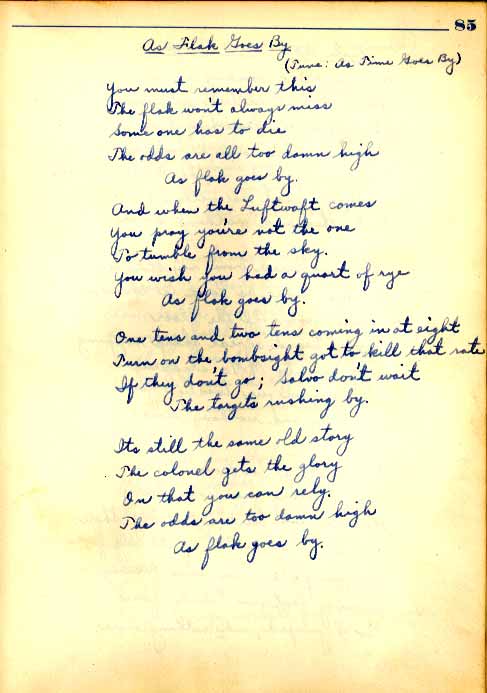 85
As Flak Goes By
(Tune: As Time Goes By)
You must remember this
The flak won't always miss
Some one has to die
The odds are all too damn high
As flak goes by.
And when the Luftwaft comes
You pray you're not the one
To tumble from the sky.
You wish you had a quart of rye
As flak goes by.
One tens and two tens coming in at eight
Turn on the bombsight got to kill that rate
If they don't go; Salvo don't wait
The targets rushing by.
Its still the same old story
The colonel gets the glory
On that you can rely.
The odds are too damn high
As flak goes by.